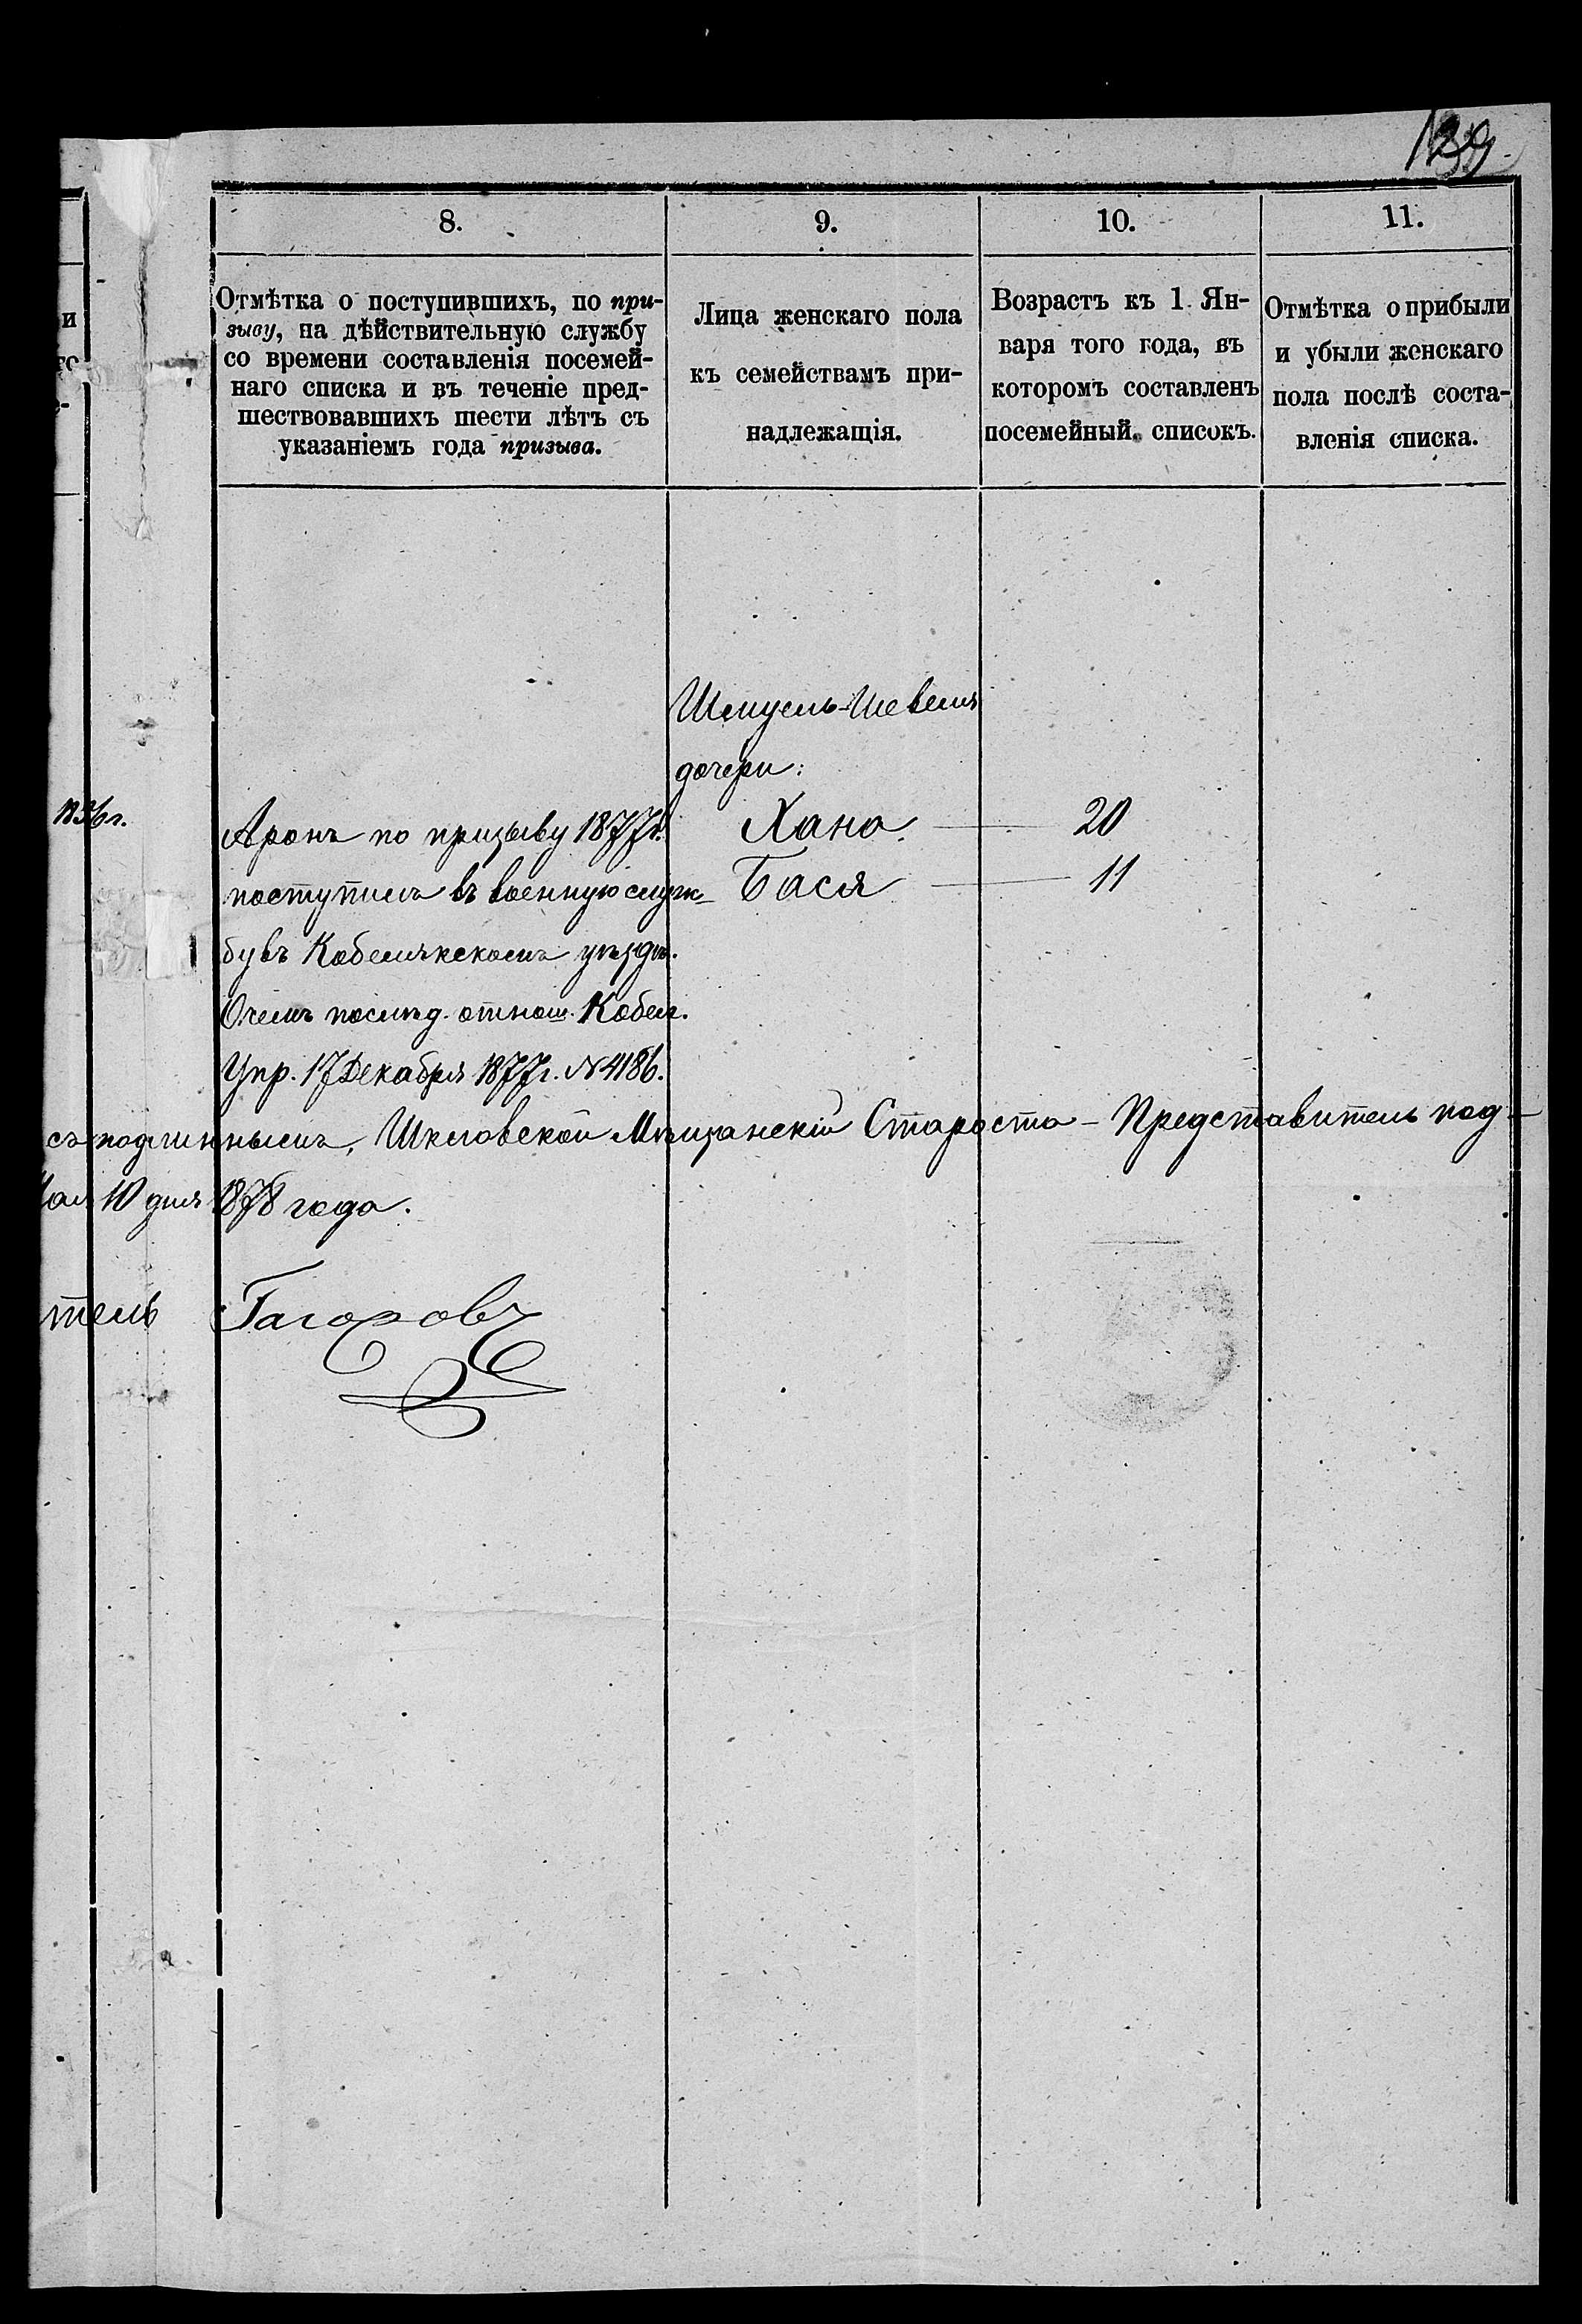 139.
8.
9.
10.
11.
и
го
е-
Отмѣтка о поступившихъ, по при-
зыву, на дѣйствительную службу
со времени составленія посемей-
наго списка и въ теченіе пред-
шествовавшихъ шести лѣтъ съ
указаніемъ года призыва.
Лица женскаго пола
къ семействамъ при-
надлежащія.
Возрастъ къ 1 Ян-
варя того года, въ
которомъ составленъ
посемейный списокъ.
Отмѣтка о прибыли
и убыли женскаго
пола послѣ соста-
вленія списка.
Шмуель-Шевеля
дочери:
Хана 20
Бася 11
1836 г.
Аронъ по призыву 1877 г.
поступилъ въ военную служ-
бу въ Кобелякскомъ уѣздѣ.
О чемъ послѣд. отнош. Кобел.
Упр. 17 Декабря 1877 г. № 4186.
съ подлиннымъ, Шкловской Мѣщанскій Староста - Представитель под-
Мая 10 дня 1878 года.
тель